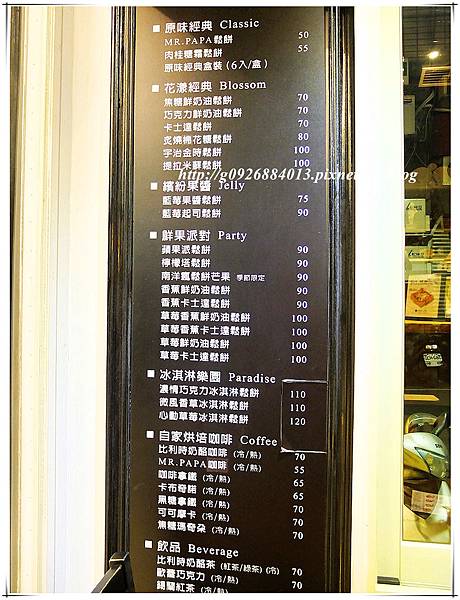 ■ 原味經典 Classic
MR.PAPA鬆餅 50
肉桂糖霜鬆餅 55
原味經典盒裝 (6入/盒)
■ 花漾經典 Blossom
焦糖鮮奶油鬆餅 70
巧克力鮮奶油鬆餅 70
卡士達鬆餅 70
炙燒棉花糖鬆餅 80
宇治金時鬆餅 100
提拉米蘇鬆餅 100
■ 繽紛果醬 Jelly
藍莓果醬鬆餅 75
藍莓起司鬆餅 90
■ 鮮果派對 Party
蘋果派鬆餅 90
檸檬塔鬆餅 90
南洋瘋鬆餅芒果 季節限定 90
香蕉鮮奶油鬆餅 90
香蕉卡士達鬆餅 90
草莓香蕉鮮奶油鬆餅 100
草莓香蕉卡士達鬆餅 100
草莓鮮奶油鬆餅 100
草莓卡士達鬆餅 100
■ 冰淇淋樂園 Paradise
濃情巧克力冰淇淋鬆餅 110
微風香草冰淇淋鬆餅 110
心動草莓冰淇淋鬆餅 120
■ 自家烘培咖啡 Coffee
比利時奶酪咖啡 (冷/熱) 70
MR.PAPA咖啡 (冷/熱) 55
咖啡拿鐵 (冷/熱) 65
卡布奇諾 (冷/熱) 65
黑糖拿鐵 (冷/熱) 70
可可摩卡 (冷/熱) 70
焦糖瑪奇朵 (冷/熱) 70
■ 飲品 Beverage
比利時奶酪茶 (紅茶/綠茶) (冷) 70
歐薔巧克力 (冷/熱) 70
錫蘭紅茶 (冷/熱) 70